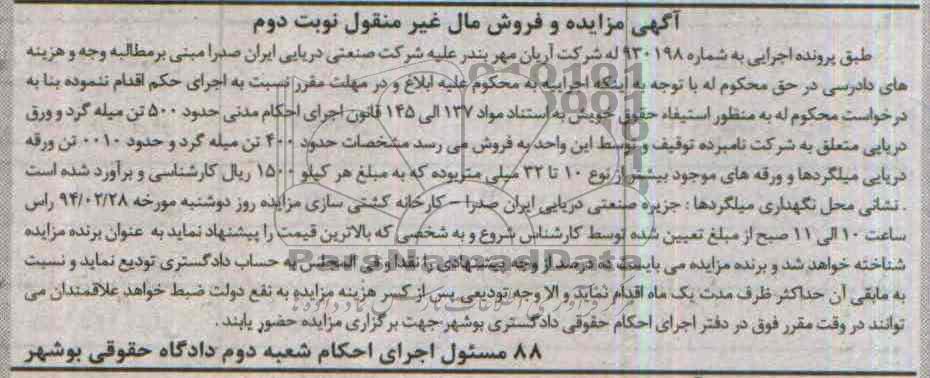 آگهی مزایده و فروش مال غیر منقول نوبت دوم
طبق پرونده اجرایی به شماره ۹۳۰۱۹۸ له شرکت آریان مهر بندر علیه شرکت صنعتی دریایی ایران صدرا مبنی بر مطالبه وجه و هزینه
های دادرسی در حق محکوم له با توجه به اینکه اجراییه به محکوم علیه ابلاغ و در مهلت مقرر نسبت به اجرای حکم اقدام ننموده بنا به
درخواست محکوم له به منظور استیفاء حقوق خویش به استناد مواد ۱۳۷ الی ۱۴۵ قانون اجرای احکام مدنی حدود ۵۰۰ تن میله گرد و ورق
دریایی متعلق به شرکت نامبرده توقیف و توسط این واحد به فروش می رسد مشخصات حدود ۴۰۰ تن میله گرد و حدود ۰۰۱۰ تن ورقه
دریایی میلگردها و ورقه های موجود بیشتر از نوع ۱۰ تا ۳۲ میلی متر بوده که به مبلغ هر کیلو ۱۵۰۰ ریال کارشناسی و برآورد شده است
. نشانی محل نگهداری میلگردها : جزیره صنعتی دریایی ایران صدرا – کارخانه کشتی سازی مزایده روز دوشنبه مورخه ۹۴/۰۲/۲۸ راس
ساعت ۱۰ الی ۱۱ صبح از مبلغ تعیین شده توسط کارشناس شروع و به شخصی که بالاترین قیمت را پیشنهاد نماید به عنوان برنده مزایده
شناخته خواهد شد و برنده مزایده می بایست ده درصد از وجه پیشنهادی را نقدا و فی المجلس به حساب دادگستری تودیع نماید و نسبت
به مابقی آن حداکثر ظرف مدت یک ماه اقدام نماید و الا وجه تودیعی پس از کسر هزینه مزایده به نفع دولت ضبط خواهد علاقمندان می
توانند در وقت مقرر فوق در دفتر اجرای احکام حقوقی دادگستری بوشهر جهت برگزاری مزایده حضور یابند .
۸۸ مسئول اجرای احکام شعبه دوم دادگاه حقوقی بوشهر
ParsNamadData